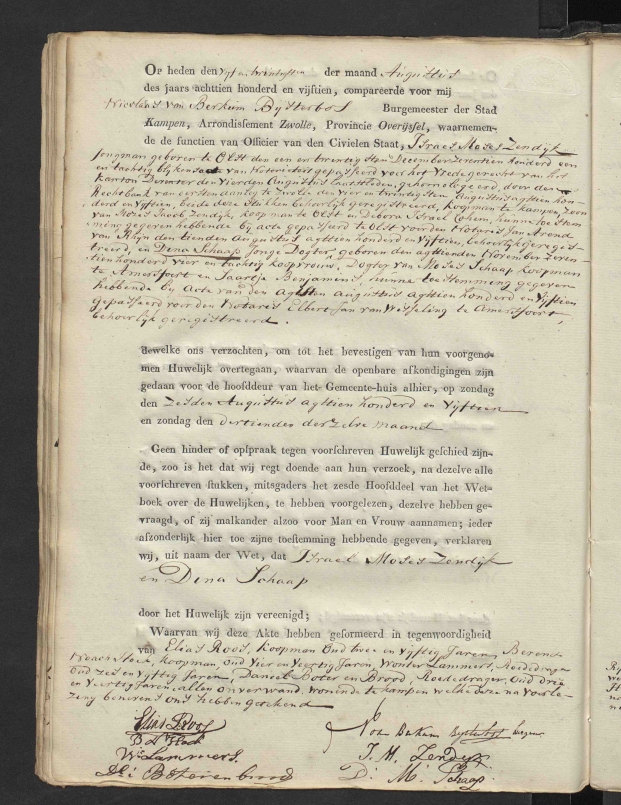 Op heden den vijf en twintigsten der maand Augustus
des jaars achttien honderd en vijftien, compareerde voor mij
Nicolaas van Berkum Bijsterbos Burgemeester der Stad
Kampen, Arrondissement Zwolle, Provincie Overijssel, waarnemen-
de de functien van Officier van den Civielen Staat, Israel Moses Zendijk
Jongman geboren te Olst den een en twintig sten December zeventien honderd een
en tachtig blijkens acte van Notorieteit gepasseerd voor het Vredegerecht van het
kanton Deventer den Vierden Augustus laatstleden, gehomologeerd door de
Rechtbank van eersten aanleg te Zwolle den vier en twintigsten Augustus agttien hon-
derd en vyftien, beide deze stukken behoorlijk geregistreerd, koopman te Kampen, Zoon
van Moses Jacob Zendijk, koopman te Olst en Debora Israel Cohen, hunne toestem
ming gegeven hebbende by acte gepasseerd te Olst voor den Notaris Jan Arend
van Rhijn den tienden Augustus agttien honderd en vyftien, behoorlijk geregis-
treerd, en Dena Schaap Jonge Dogter, geboren den agttienden November zeven-
tien honderd vier en tachtig koopvrouw, Dogter van Moses Schaap koopman
te Amersfoort en Saartje Benjamins, hunne toestemming gegeven
hebbende by Acte van den agtsten Augustus agttien honderd en vyftien
gepasseerd voor den Notaris Elbert Jan van Wesseling te Amersfoort,
behoorlijk geregistreerd.
dewelke ons verzochten, om tot het bevestigen van hun voorgeno-
men Huwelijk overtegaan, waarvan de openbare afkondigingen zijn
gedaan voor de hoofddeur van het Gemeente-huis alhier, op zondag
den zesden Augustus agttien honderd en vyftien
en zondag den dertienden derzelve maand
Geen hinder of opspraak tegen voorschreven Huwelijk geschied zijn-
de, zoo is het dat wij regt doende aan hun verzoek, na dezelve alle
voorschreven stukken, mitsgaders het zesde Hoofddeel van het Wet-
boek over de Huwelijken, te hebben voorgelezen, dezelve hebben ge-
vraagd, of zij malkander alzoo voor Man en Vrouw aannamen; ieder
afzonderlijk hier toe zijne toestemming hebbende gegeven, verklaren
wij, uit naam der Wet, dat Israel Moses Zendijk
en Dena Schaap
door het Huwelijk zijn vereenigd;
Waarvan wij deze Akte hebben geformeerd in tegenwoordigheid
van Elias Roos, koopman Oud twee en vyftig Jaren, Berend
koopman, Oud Vier en Veertig Jaren, Wonter Lammers, Roededrager
Oud zes en vyftig Jaren, Daniel Boter en Brood, Roededrager, Oud drie
en Veertig Jaren, allen onverwand, wonende te Kampen welke deze na voorle-
zing benevens ons hebben getekend
Elias Roos
Van Berkum Bijsterbos
W. Lammers
I. M. Zendijk
D. Boterenbrood
D. M. Schaap